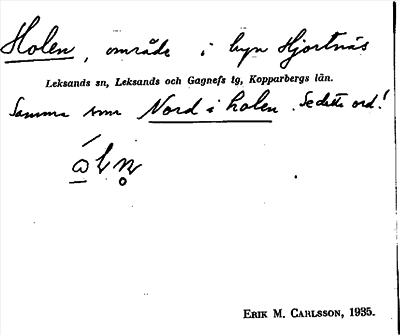 Holen, område i byn Hjortnäs
Leksands sn, Leksands och Gagnefs tg, Kopparbergs län.
Samma som Nord i holen. Se detta ord!
ERIK M. CARLSSON, 1935.